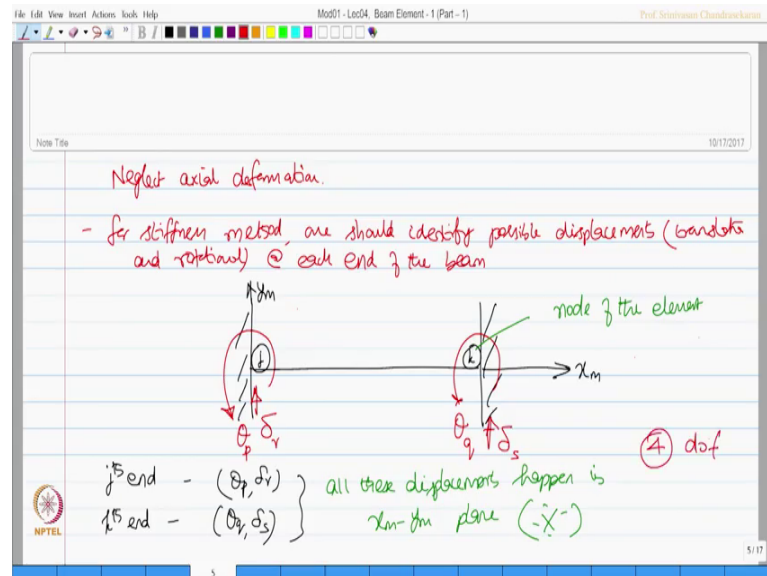 File Edit View Insert Actions Tools Help
Mod01 - Lec04, Beam Element - 1 (Part – 1)
Prof. Srinivasan Chandrasekaran
B I
Note Title
10/17/2017
Neglect axial deformation.
- for stiffness method, one should identify possible displacements (translate
and rotational) @ each end of the beam
ym
node of the element
j
k
xm
θp δr
θq δs
4 dof
jth end - (θp, δr)
kth end - (θq, δs)
all these displacements happen is
xm-ym plane
NPTEL
5 / 17
5